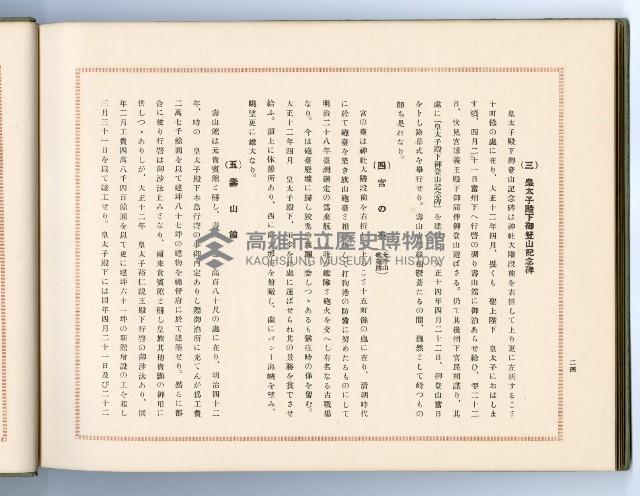 二四
(三) 皇太子殿下御登山記念碑
皇太子殿下御登山記念碑は神社大階段前を右折して上り更に左折するこ
十町餘の處に在り、大正十二年四月、畏くも 聖上陛下 皇太子におはしま
す頃、四月二十一日當州下へ行啓の砌り壽山館に御泊あらせ給ひ、翌二十二
日、伏見宮博義王殿下御同伴御登山遊ばさる。仍て其後州下官民相議り、其
處に「皇太子殿下御登山記念碑」を建
正十四年四月二十二日、御登山當日
をトし除幕式を擧行せり。壽山
鬱蒼たるの間、巍然として峙つもの
卽ち是れなり。
(四) 宮の臺
宮の臺は神社大階段前を右折
こと十五町餘の處に在り、清朝時代
に於て砲臺を築き旗山砲臺と相
て打狗港の防備に努めたるものにして
明治二十八年臺灣鎭定の爲來航
我が艦隊と砲火を交へし有名なる古戰場
なり。今は砲臺廢墟に歸し
委しつゝあるも猶往時の俤を留む。
大正十二年四月 皇太子殿下、
處に運ばせられ其の景勝を賞でさせ
給ふ。頂上に休憩所あり、西に
を俯瞰し、南にバシー海峽を望み、
眺望更に雄大なり。
(五) 壽山館
壽山館は元貴賓館と稱し、
高百八十尺の處に在り、明治四十二
年、時の 皇太子殿下本島行啓の
御內定ありし際御泊所に充てんが爲工費
二萬七千餘圓を以て建坪八十七坪の建物を總督府に於て建築せり。然るに都
合に依り行啓は御沙汰止みとなり、爾來貴賓館と稱し皇族其他貴顯の御用に
供しつゝありしが、大正十二年、皇太子裕仁親王殿下行啓の御沙汰あり、同
年二月工費四萬八千四百餘圓を以て更に建坪六十一坪の新館增設の工を起し
三月三十一日を以て竣工せり。皇太子殿下には同年四月二十一日及び二十二
高雄市立歷史博物館
KAOHSIUNG MUSEUM OF HISTORY